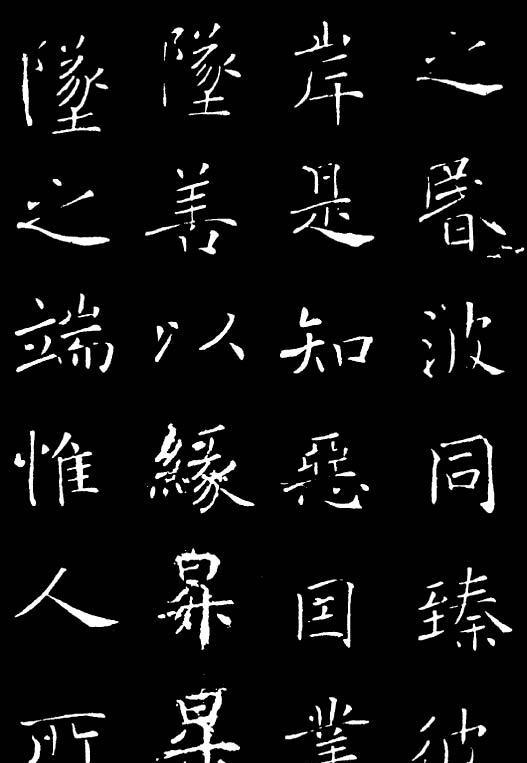 之昬波同臻彼
岸是知惡因業
墜善以緣昇昇
墜之端惟人所